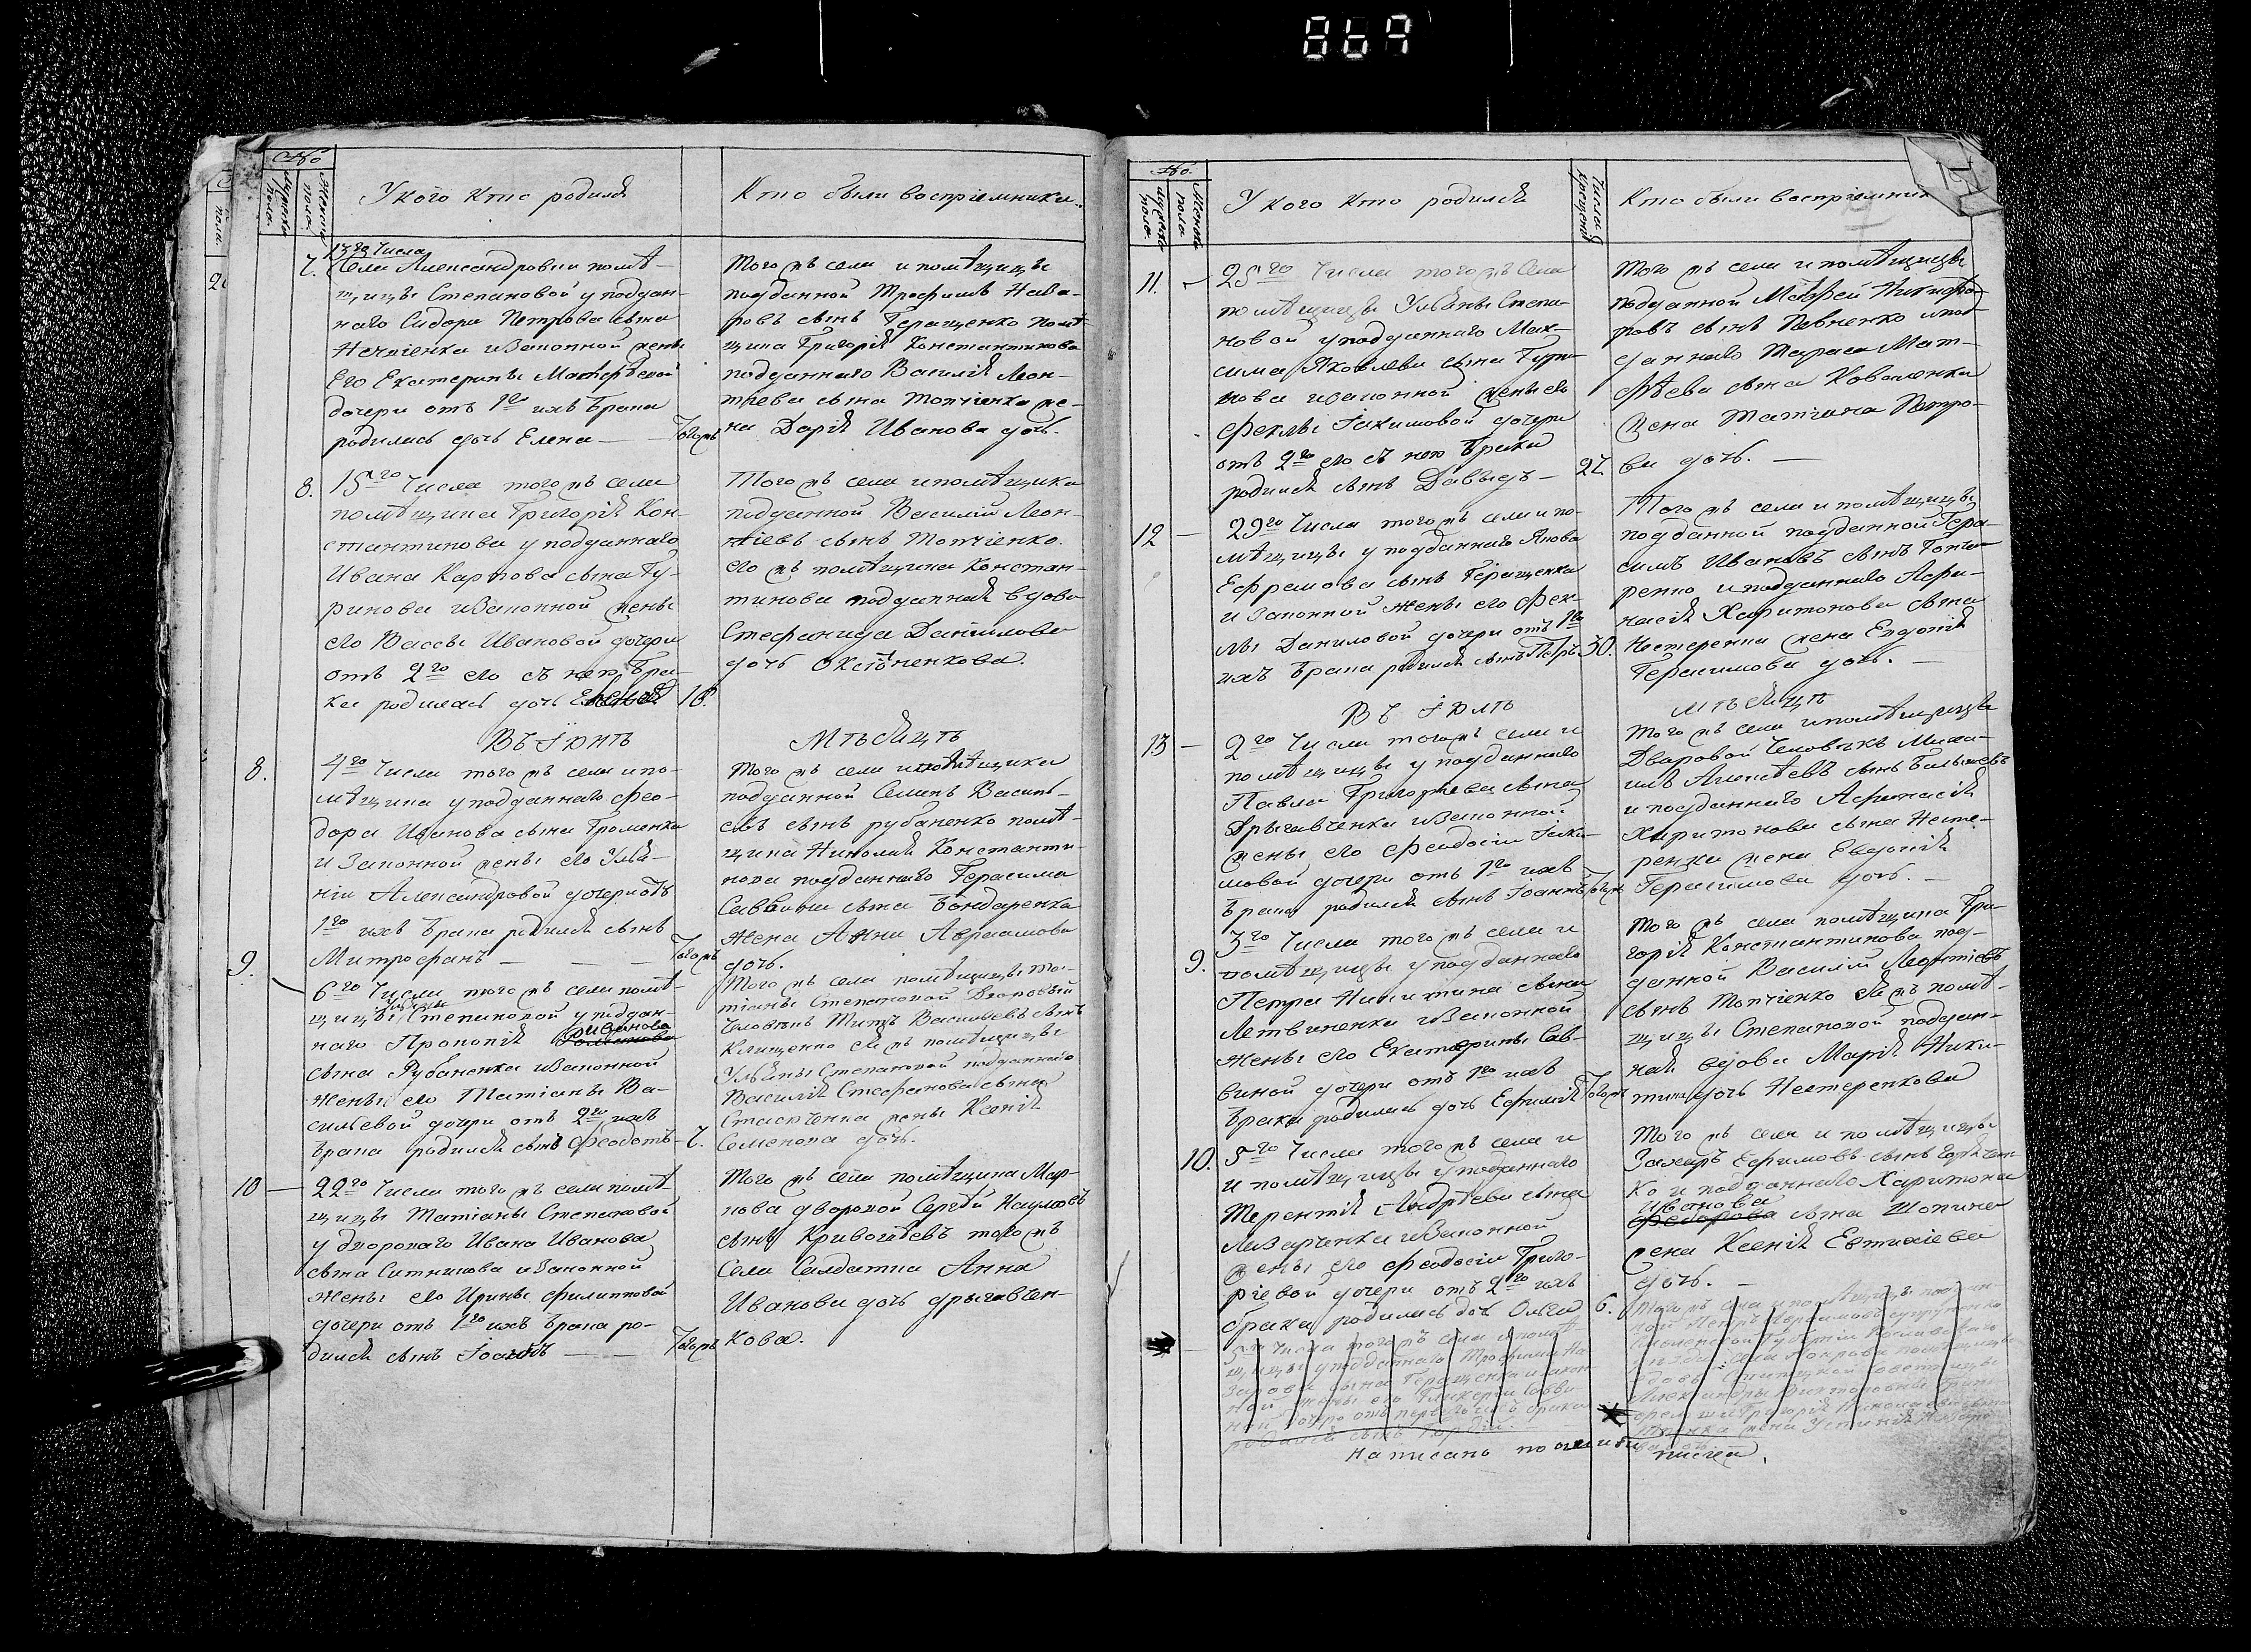 869
№
Мужеска пола.
Женска пола.
У кого кто родился
Кто были воспріемники.
13го Числа
7. Села Александровки помѣ-
щицы Степановой у поддан-
наго Сидора Петрова сына
и Законной жены
Его Екатерины Матфѣевой
дочери отъ 1го ихъ брака
родилась дочь Елена — Тогожъ
Того жъ села и помѣщицы
подданной Трофимъ Наза-
ровъ сынъ Геращенко помѣ-
щика Григорія Константинова
подданнаго Василія Леон-
тіева сына Топчіенка же-
на Дарія Иванова дочь.
8. 15го Числа того жъ села
помѣщика Григорія Кон-
стантинова у подданнаго
Ивана Карпова сына Гу-
ринова и Законной жены
его Вассы Ивановой дочери
отъ 2го его съ нею бра-
ка родилась дочь 16.
Того жъ села и помѣщика
подданной Василій Леон-
тіевъ сынъ Топчіенко.
его жъ помѣщика Констан-
тинова подданная вдова
Стефанида Данилова
дочь
Въ Іюнѣ Мѣсяцѣ
8. 4го Числа того жъ села и по-
мѣщика у подданнаго Фео-
дора Иванова сына Громенка
и Законной жены его Улія-
ніи Александровой дочери отъ
1го ихъ брака родился сынъ
Митрофанъ — — — Тогожъ
Того жъ села и помѣщика
подданной Семенъ Василь-
евъ сынъ рубаненко помѣ-
щика Николая Константи-
нова подданнаго Герасима
Саввина сына Бондаренка
жена Анна Авраамова
дочь.
9. 6го Числа того жъ села помѣ-
щицы Ульяны Степановой у поддан-
наго Прокопія Иванова
сына Рубаненка и Законной
жены его Татіаны Ва-
сильевой дочери отъ 2го ихъ
брака родился сынъ Феодотъ — 7.
Того жъ села помѣщицы Та-
тіаны Степановой Дворовый
Человѣкъ Титъ Васильевъ сынъ
Клищенко ея жъ помѣщицы
Ульяны Степановой подданнаго
Василія Стефанова сына
жены Ксенія
Семенова дочь.
10 — 22го Числа того жъ села помѣ-
щицы Татіаны Степановой
у двороваго Ивана Иванова
сына Ситникова и Законной
жены его Ирины Филипповой
дочери отъ 1го ихъ брака ро-
дился сынъ Іоаннъ — — Тогожъ
Того жъ села помѣщика Мар-
кова дворовой Сергѣй Наумовъ
сынъ Кривошѣевъ того жъ
Села Салдатка Анна
Иванова дочь дрыгавчен-
кова.
№
Мужеска пола.
Женска пола.
У кого кто родился
Числа Крещенія
Кто были воспріемники
11. — 25го Числа того жъ Села
помѣщицы Ульяны Степа-
новой у подданнаго Мак-
сима Яковлева сына Гури-
нова и законной жены его
Феклы Іакимовой дочери
отъ 2го его съ нею брака
родился сынъ Давыдъ — 27.
Того жъ села и помѣщицы
подданной Матфей Никифо-
ровъ сынъ Певненко и под-
даннаго Тараса Мат-
фѣева сына Коваленка
жена Татіана Петро-
ва дочь. —
12 — 29го Числа того жъ села и по-
мѣщицы у подданнаго Якова
Ефремова сынъ Геращенка
и Законной жены его Фек-
лы Даниловой дочери отъ 1го
ихъ брака родился сынъ Петръ 30.
Того жъ села и помѣщицы
подданной подданной Гера-
симъ Ивановъ сынъ Гонча-
ренко и подданнаго Афа-
насія Харитонова сына
Нестеренка жена Евдокія
Герасимова дочь. —
Въ Іюлѣ мѣсяцѣ
13 — 2го Числа того жъ села и
помѣщицы у подданнаго
Павла Григорьева сына
Дрыгавченка и Законной
жены его Феодосіи Іаки-
мовой дочери отъ 1го ихъ
брака родился сынъ Іоаннъ Тогожъ
Того жъ села и помѣщицы
Дворовой Человѣкъ Миха-
илъ Алексѣевъ сынъ
и подданнаго Афанасія
Харитонова сына Несте-
ренка жена Евдокія
Герасимова дочь. —
9. 3го Числа того жъ села и
помѣщицы у подданнаго
Петра Никитина сына
Летвиненка и Законной
жены его Екатерины Сав-
виной дочери отъ 1го ихъ
брака родилась дочь Ефимія Тогожъ
Того жъ села помѣщика Гри-
горія Константинова под-
данной Василій Леонтіевъ
сынъ Топчіенко жъ помѣ-
щицы Степановой поддан-
ная вдова Марія Ники-
тина дочь Нестеренкова
10. 5го Числа того жъ села и
и помѣщицы у подданнаго
Терентія Андрѣева сына
Лазарченка и Законной
жены его Феодосіи Григо-
ріевой дочери отъ 2го ихъ
брака родилась дочь Ольга 6.
Того жъ села и помѣщицы
Захаръ Ефимовъ сынъ
ко и подданнаго Харитона
Иванова
Федорова сына Шопина
жена Ксенія Евтихіева
дочь. —
Числа того жъ села и помѣ-
щицы у подданнаго Трофима На-
зарова сына Геращенка и закон-
ной жены его Гликеріи Савви-
ной
родился сынъ
Того жъ села и помѣщицы
Написано по ошибки писца.